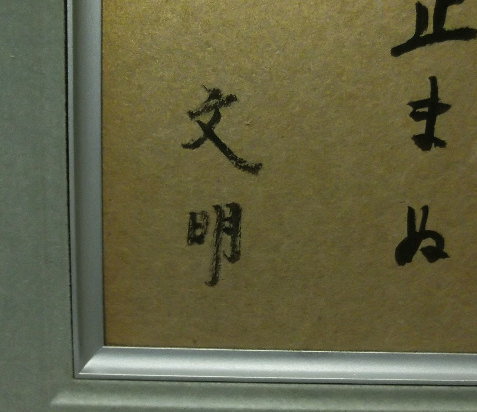 止まぬ
文明